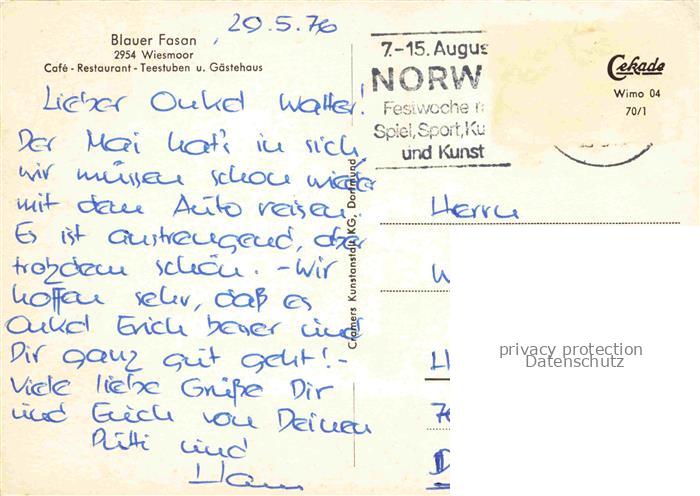 29.5.76
Blauer Fasan
2954 Wiesmoor
Café - Restaurant - Teestuben u. Gästehaus
7.-15. Augus
NORW
Festwoche
Spiel, Sport, Ku
und Kunst
Cekade
Wimo 04
70/1
Lieber Onkel Walter!
Der Mai hat's in sich
wir müssen schon wieder
mit dem Auto reisen!
Es ist anstrengend, aber
trotzdem schön. - Wir
hoffen sehr, daß es
Onkel Erich besser und
Dir ganz gut geht! -
Viele liebe Grüße Dir
und Erich von Deinen
Putti und
Hans
Cramers Kunstanstalt KG, Dortmund
Herrn
W
privacy protection
Datenschutz
D